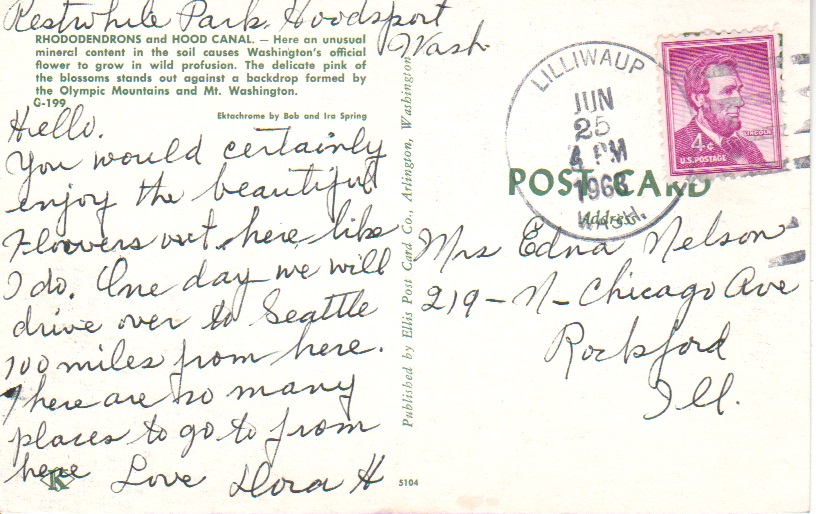 Restwhile Park, Hoodsport
Wash.
RHODODENDRONS and HOOD CANAL. — Here an unusual
mineral content in the soil causes Washington's official
flower to grow in wild profusion. The delicate pink of
the blossoms stands out against a backdrop formed by
the Olympic Mountains and Mt. Washington.
G-199
Ektachrome by Bob and Ira Spring
Hello.
You would certainly
enjoy the beautiful
Flowers out here like
I do. One day we will
drive over to Seattle
100 miles from here.
There are so many
places to go to from
here Love Dora H
K
5104
Published by Ellis Post Card Co., Arlington, Washington
LILLIWAUP
JUN
25
4 PM
1963
WASH.
LINCOLN
4¢
U.S. POSTAGE
POST CARD
Address
Mrs Edna Nelson
219-N-Chicago Ave
Rockford
Ill.